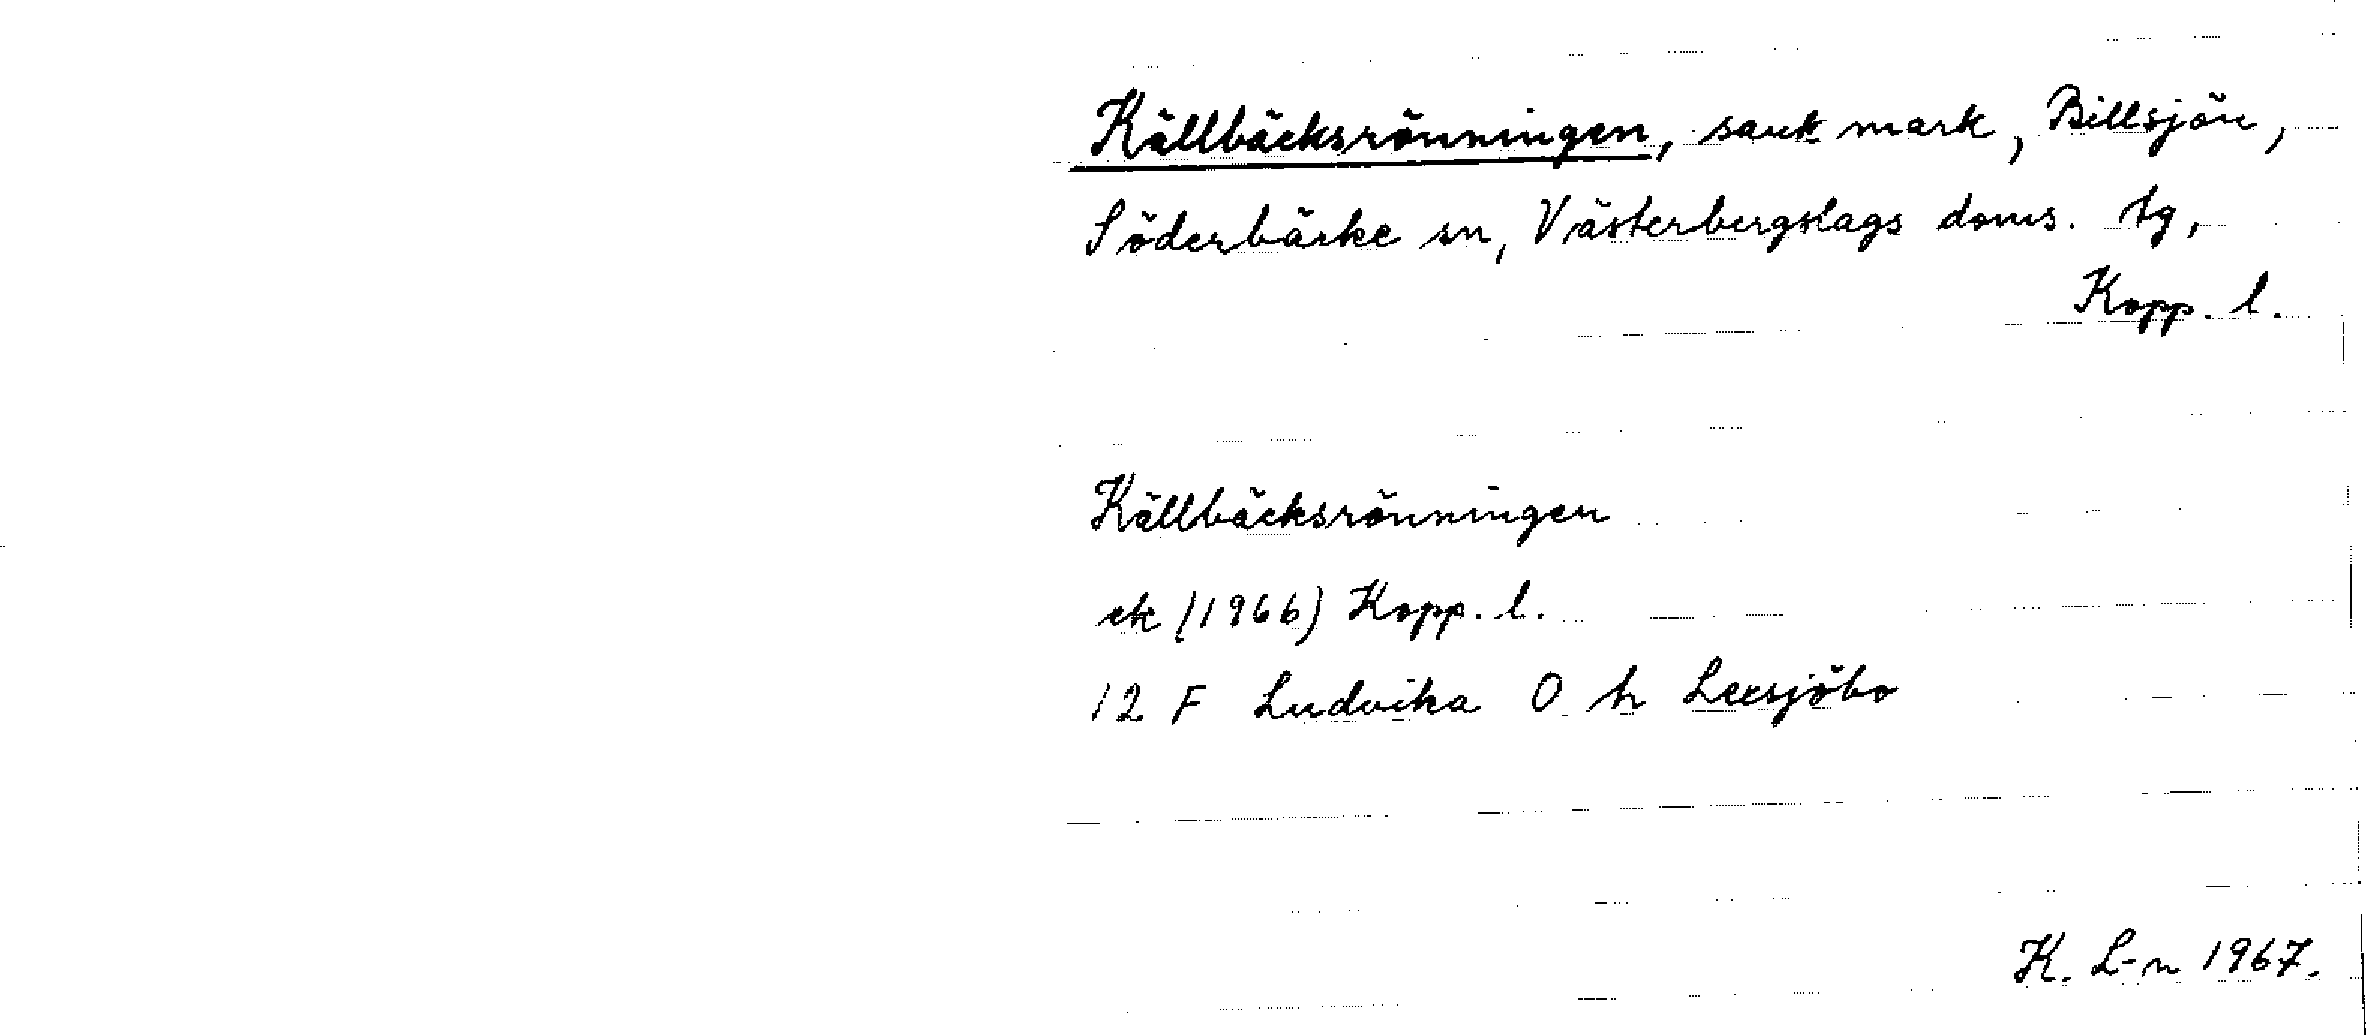 Källbäcksrönningen, sank mark, Billsjön,
Söderbärke sn, Västerbergslags doms. tg,
Kopp. l.
Källbäcksrönningen
ek (1966) Kopp. l.
12 F Ludvika O h Leersjöbo
K. L-n 1967.